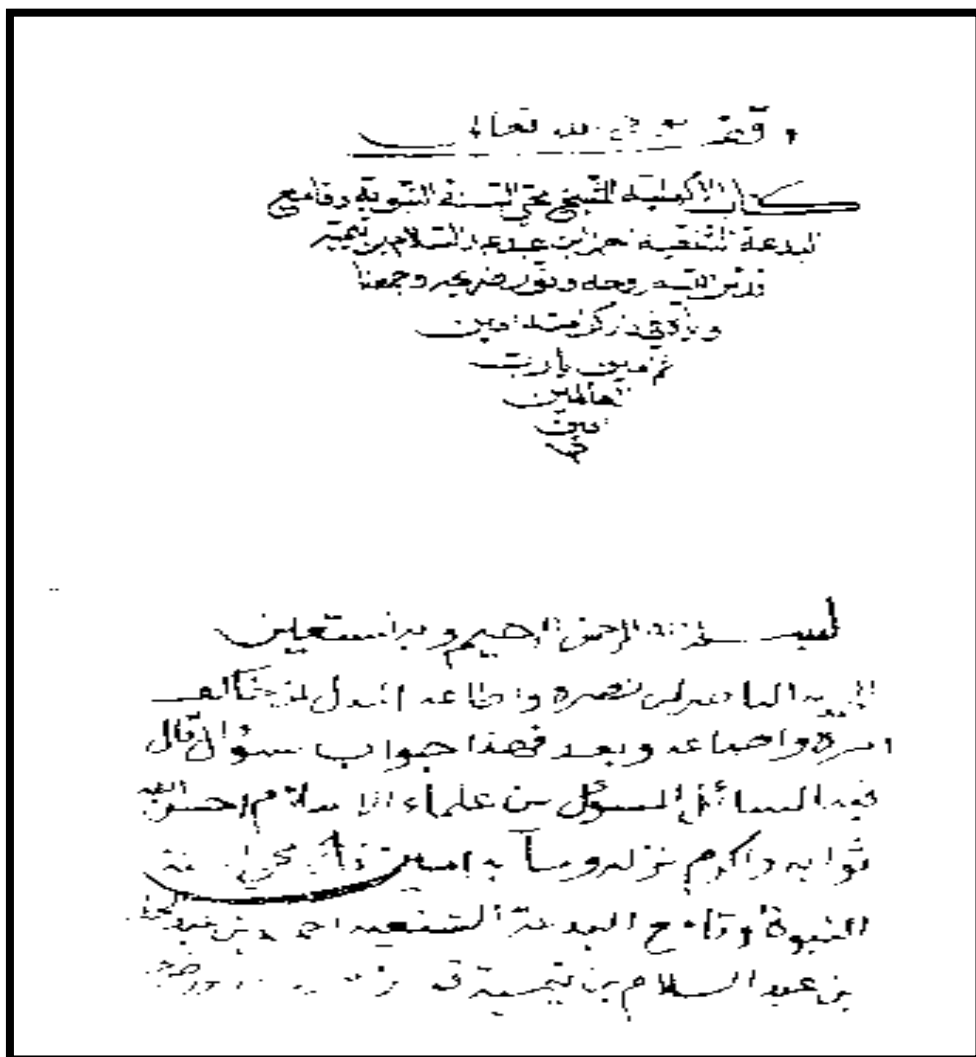 وقف لله تعالى
كتاب الأكملية للشيخ محي السنة النبوية وقامع
البدعة الشنعية احمد ابن عبد السلام بن تيمية
قدس الله روحه ونور ضريحه وجمعنا
وإياه في كرامته امين
ثم امين يا رب
العالمين
امين
بسم الله الرحمن الرحيم وبه نستعين
الحمد لله الناصر لمن نصره واطاعه المذل لمن خالف
امره واضاعه وبعد فهذا جواب سؤال قال
فيه السائل المسؤل من علماء الاسلام احسن الله
ثوابه واكرم نزله ومآبه
النبوة وقامع البدعة الشنعيه احمد بن عبد الحليم
بن عبد السلام بن تيمية